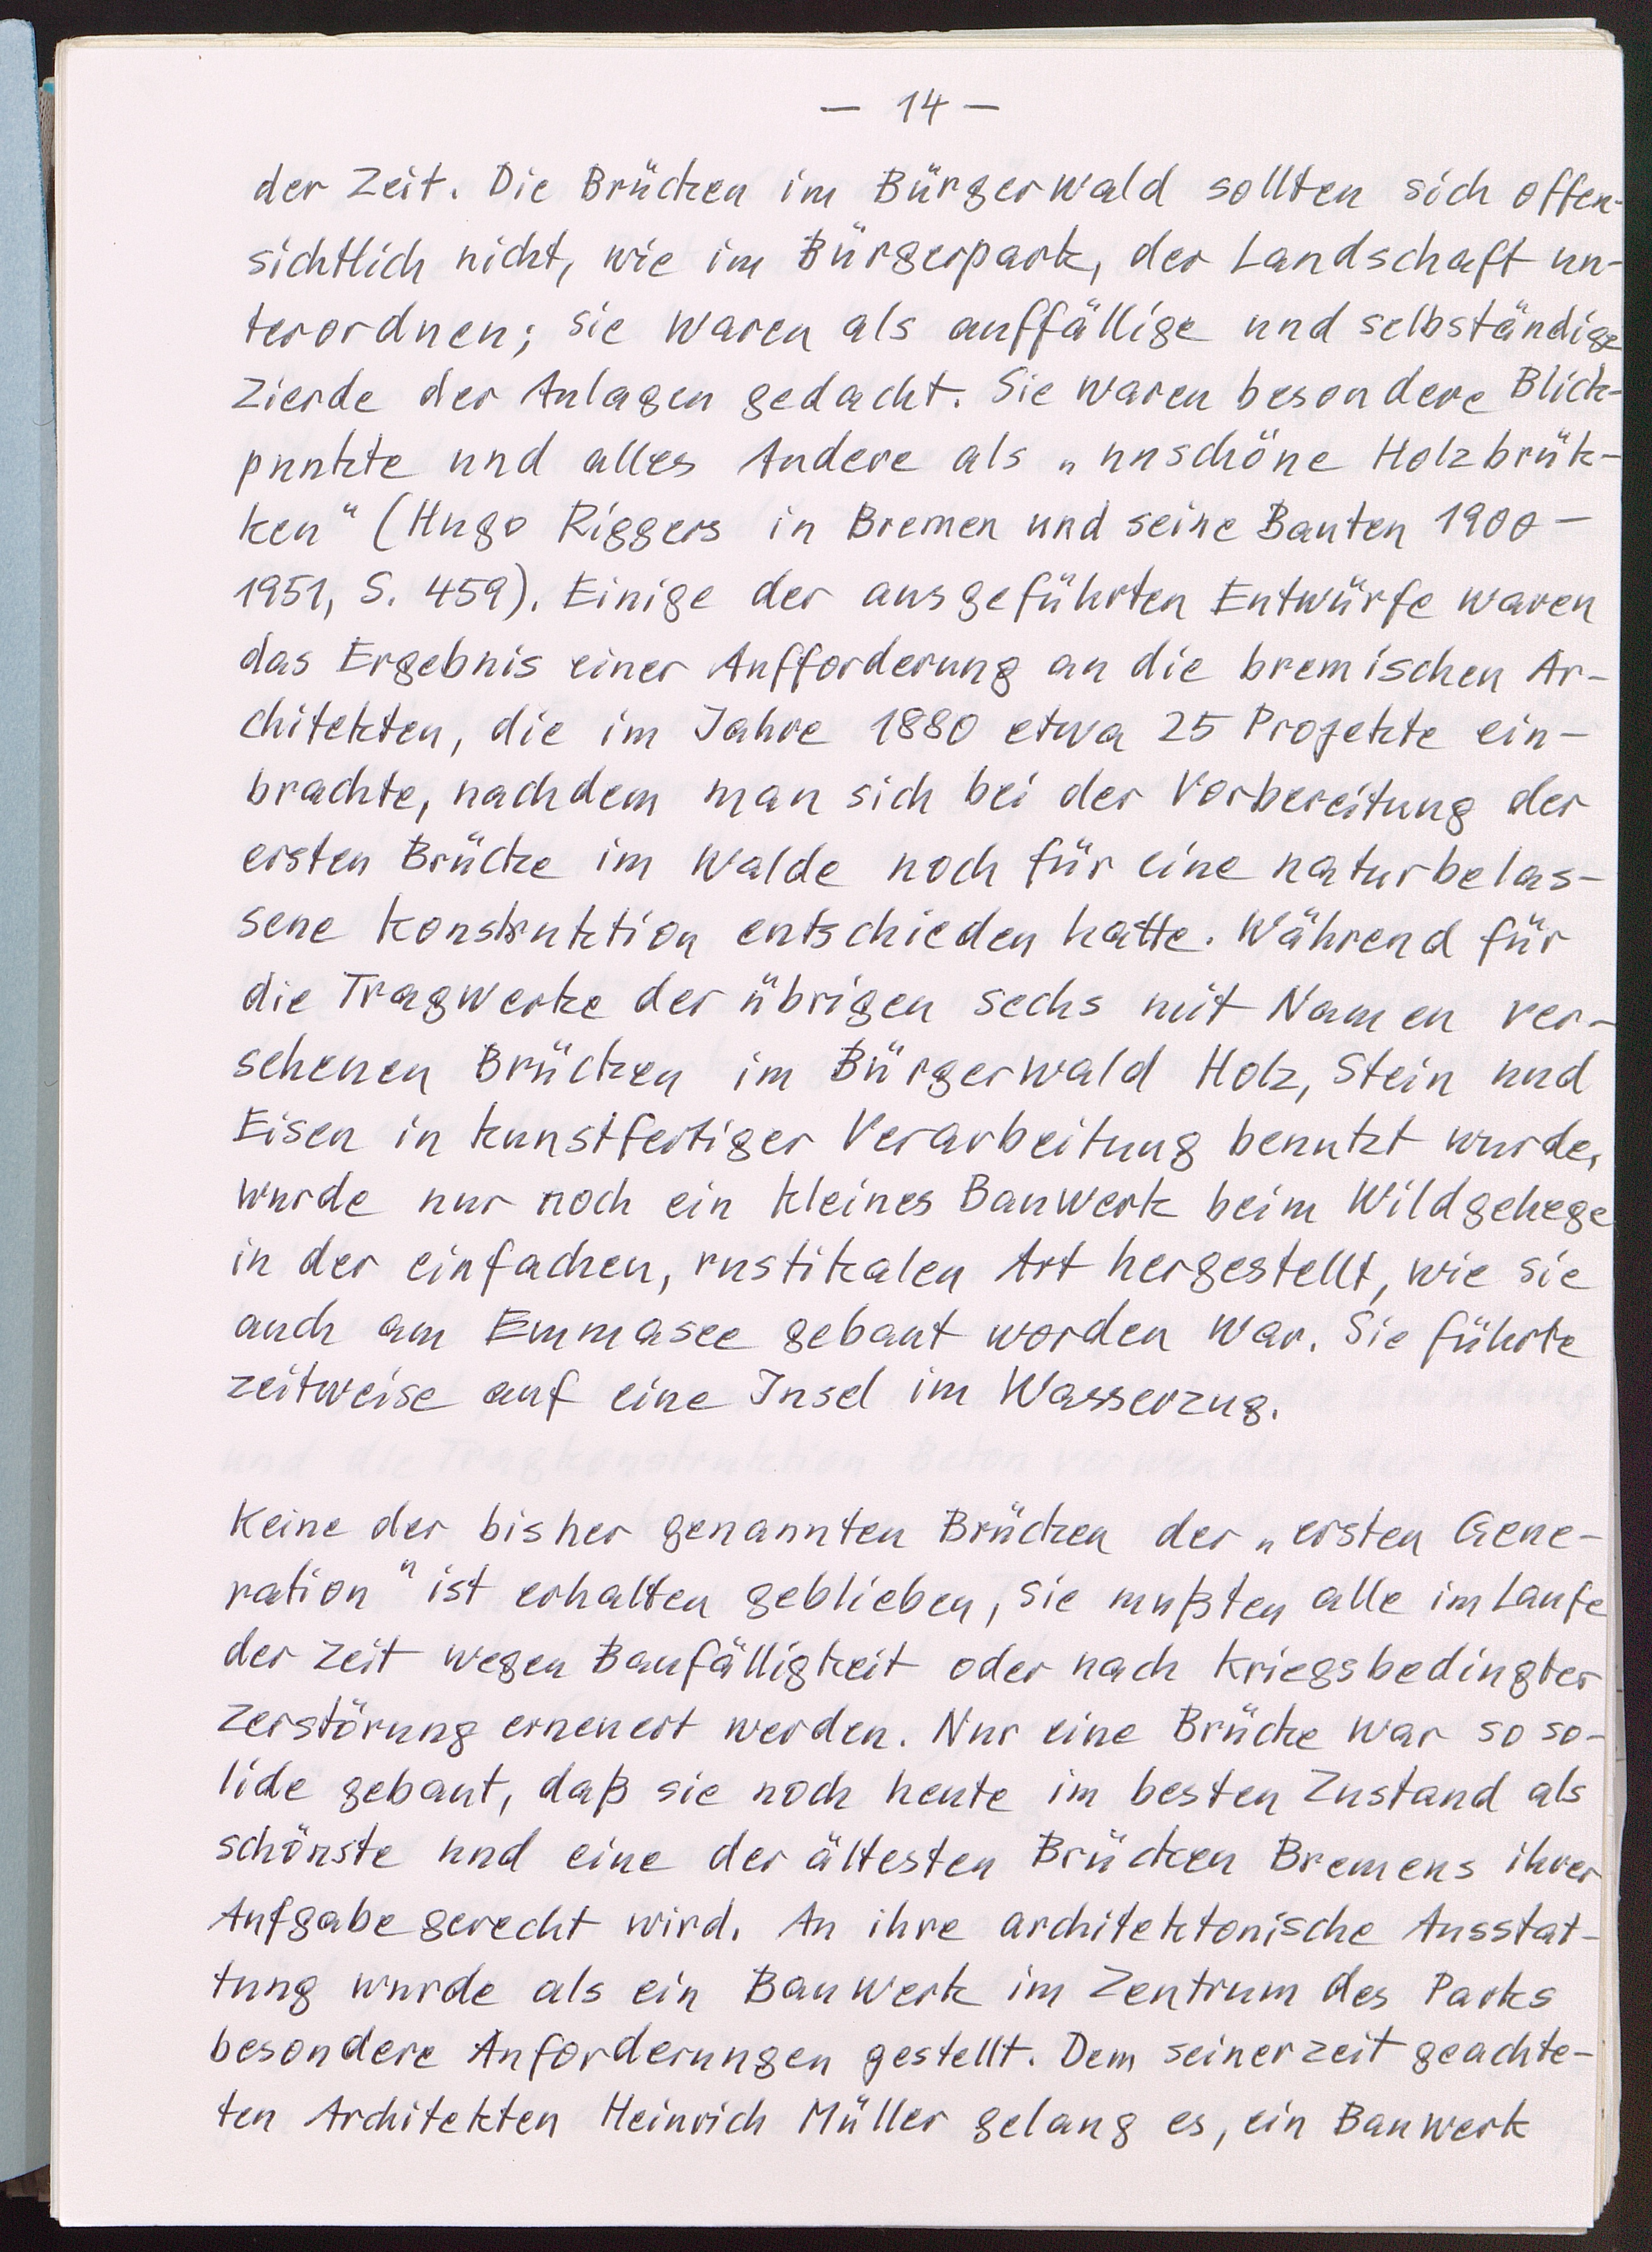 — 14 —
der Zeit. Die Brücken im Bürgerwald sollten sich offen-
sichtlich nicht, wie im Bürgerpark, der Landschaft un-
terordnen; sie waren als auffällige und selbständige
Zierde der Anlagen gedacht. Sie waren besondere Blick-
punkte und alles Andere als „unschöne Holzbrük-
ken" (Hugo Riggers in Bremen und seine Bauten 1900 —
1951, S. 459). Einige der ausgeführten Entwürfe waren
das Ergebnis einer Aufforderung an die bremischen Ar-
chitekten, die im Jahre 1880 etwa 25 Projekte ein-
brachte, nachdem man sich bei der Vorbereitung der
ersten Brücke im Walde noch für eine naturbelas-
sene Konstruktion entschieden hatte. Während für
die Tragwerke der übrigen sechs mit Namen ver-
sehenen Brücken im Bürgerwald Holz, Stein und
Eisen in kunstfertiger Verarbeitung benutzt wurde,
wurde nur noch ein kleines Bauwerk beim Wildgehege
in der einfachen, rustikalen Art hergestellt, wie sie
auch am Emmasee gebaut worden war. Sie führte
zeitweise auf eine Insel im Wasserzug.
Keine der bisher genannten Brücken der „ersten Gene-
ration" ist erhalten geblieben, sie mußten alle im Laufe
der Zeit wegen Baufälligkeit oder nach kriegsbedingter
Zerstörung erneuert werden. Nur eine Brücke war so so-
lide gebaut, daß sie noch heute im besten Zustand als
schönste und eine der ältesten Brücken Bremens ihrer
Aufgabe gerecht wird. An ihre architektonische Ausstat-
tung wurde als ein Bauwerk im Zentrum des Parks
besondere Anforderungen gestellt. Dem seinerzeit geachte-
ten Architekten Heinrich Müller gelang es, ein Bauwerk